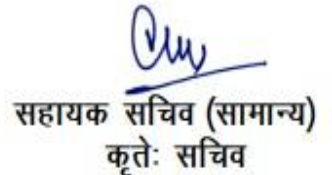 सहायक सचिव (सामान्य)
कृतेः सचिव